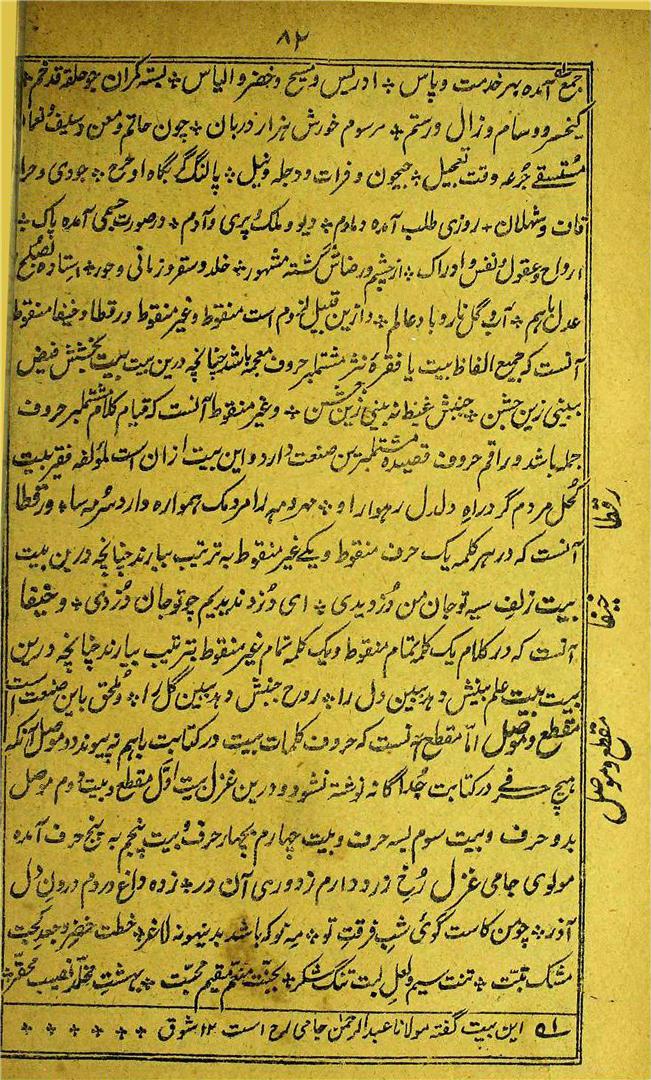 ۸۲
جمع آمده بهر خدمت و پاس ٭ ادریس و مسیح و خضر و الیاس ٭ بسته کمران چو حلقه قد خم ٭
کیخسرو و سام و زال و رستم ٭ مرسوم خورش هزار دربان ٭ چون حاتم و معن و سیف و نعمان
مستسقی جرعه وقت تعجیل ٭ جیحون و فرات و دجله و نیل ٭ پالنگ گر نگاه او ٭ جودی و حرا
قاف و شهلان ٭ روزی طلب آمده دمادم ٭ دیو و ملک و پری و آدم ٭ در صورت جسمی آمده پاک ٭
ارواح و عقول و نفس و ادراک ٭ از خشم و رضاش گشته مشهور ٭ خلد و سقر و زبانی و حور ٭ استاده
عدل باهم ٭ آب و گل نار و باد عالم ٭ و ازین قبیل است منقوط و غیر منقوط و رقطا و خیفا منقوط
آنست که جمیع الفاظ بیت یا فقره نثر مشتملبر حروف معجمه باشد چنانچه درین بیت بیت بخشش فیض
ببینی زین جشن ٭ جنبش غیظ نه بینی زین جشن ٭ و غیر منقوط آنست که تمام کلام مشتملبر حروف
جمله باشد و راقم حروف قصیده مشتملبرین صنعت دارد و این بیت ازان است لمؤلفه فقیر بیت
کحل مردم گرد راه دلدل رهوار او ٭ مهر و مه را مردمک همواره دارد سرمه سا ٭ و رقطا
آنست که در هر کلمه یک حرف منقوط و یکے غیر منقوط به ترتیب بیارند چنانچه درین بیت
بیت زلف سیه تو جان من دزدیدی ٭ ای دزد ندیدیم چو تو جان دزدی ٭ و خیفا
آنست که در کلام یک کلمه تمام منقوط و یک کلمه تمام غیر منقوط بترتیب بیارند چنانچه درین
بیت بیت علم بینش دهد ببین دل را ٭ روح جنبش دهد ببین گل را ٭ و ملحق باین صنعت است
مقطع و موصل اما مقطع آنست که حروف کلمات بیت در کتابت باهم نه پیوندد و موصل آنکه
هیچ حرفے در کتابت جداگانه نوشته نشود و درین غزل بیت اول مقطع و بیت دوم موصل
بدو حرف و بیت سوم بسه حرف و بیت چهارم بچهار حرف و بیت پنجم به پنج حرف آمده
مولوی جامی غزل رخ زرد دارم ز دوری آن در ٭ زده داغ دردم درون دل
آذر ٭ چو من کاست گوئی شب فرقت تو ٭ مه نو که باشد بدینهونه لاغر ٭ خطت خضر و جعد کجت
مشک تبت ٭ تنت سیم و لعل لبت تنگ شکر ٭ بجنت منعم مقیم محبت ٭ بهشت مخلد نصیب محقر ٭
رقطا
خیفا
مقطع و موصل
۵۱ این بیت گفته مولانا عبدالرحمن جامی رح است ۱۲ شوق ٭ ٭ ٭ ٭ ٭ ٭